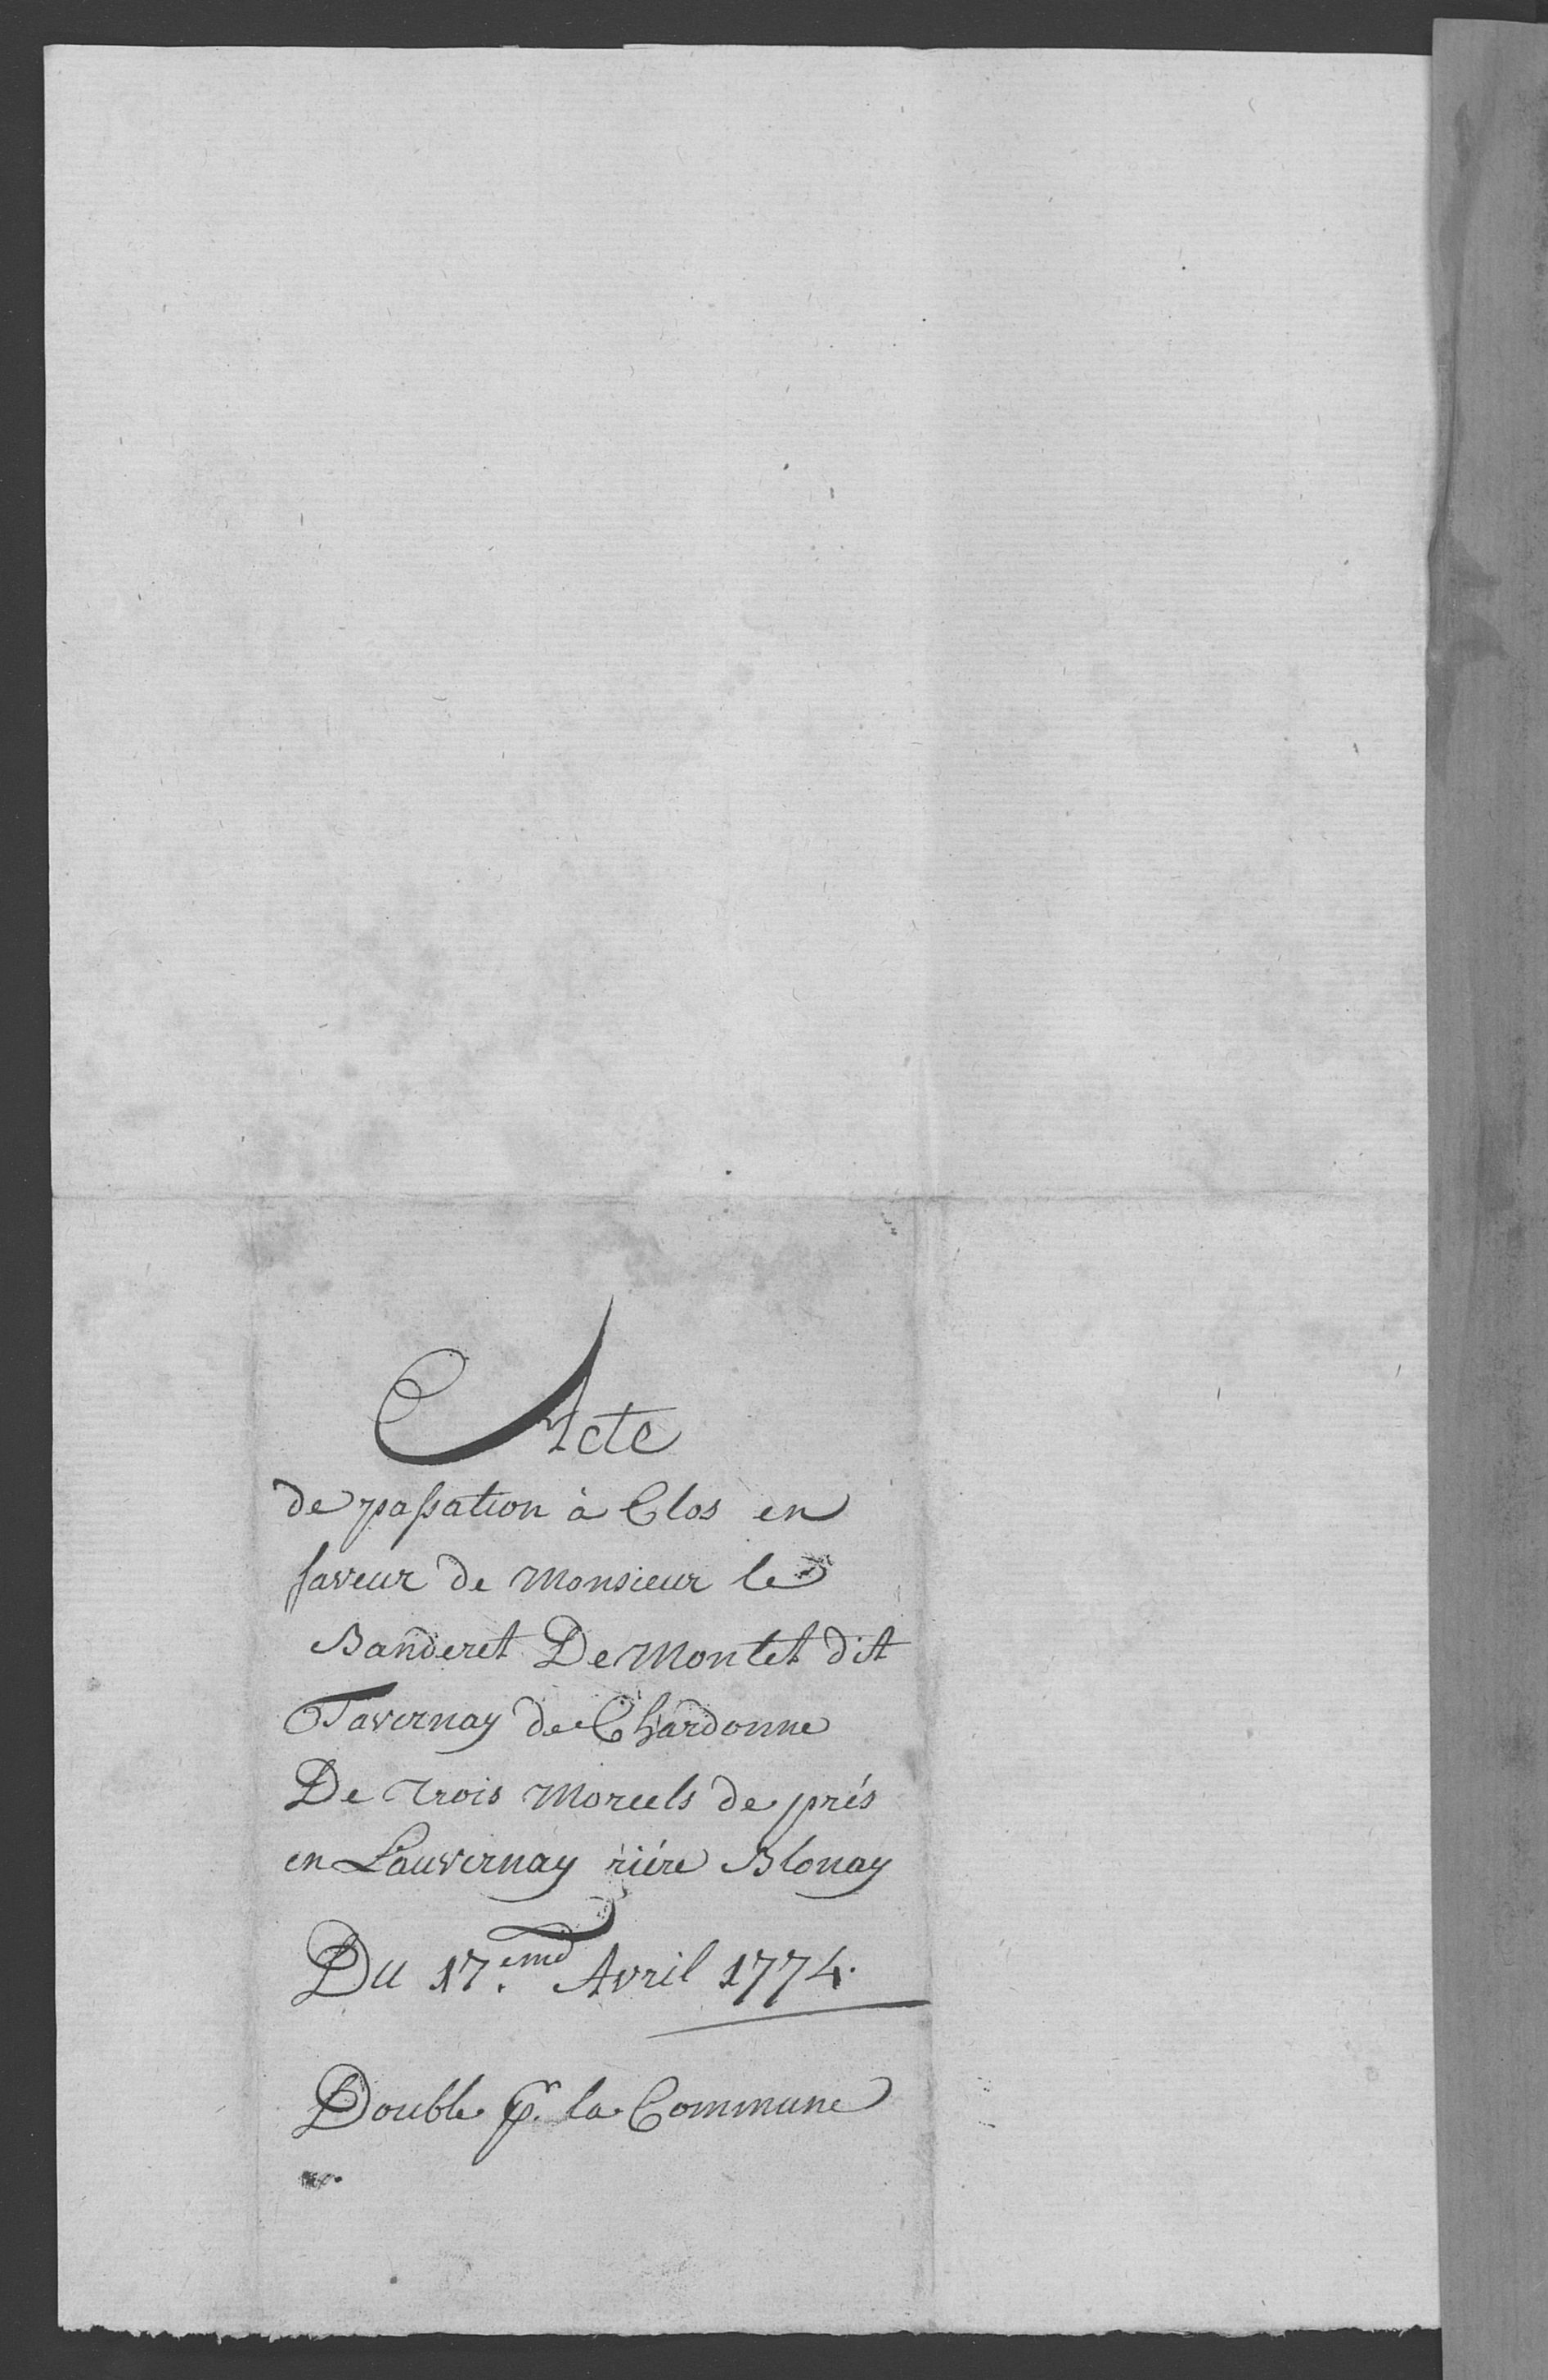 Acte
de passation à Clos en
faveur de Monsieur le
Banderet De Montet dit
Tavernay de Chardonne
De trois Morcels de prés
en Lauvernay riére Blonay
Du 17.eme Avril 1774.
Double pr. la Commune